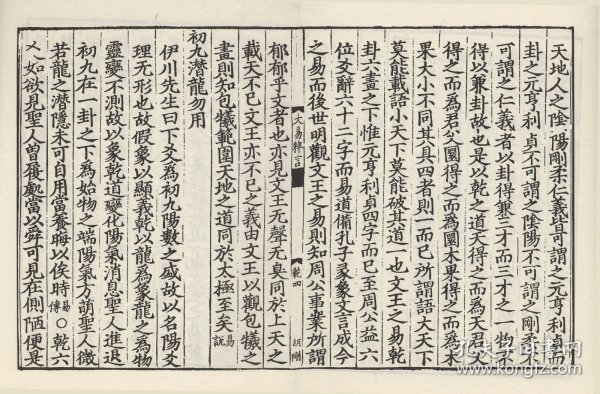 天地人之陰陽剛柔仁義皆可謂之元亨利貞而
卦之元亨利貞不可謂之陰陽不可謂之剛柔不
可謂之仁義者以卦得兼三才而三才之一物不
得以兼卦故也是以乾之道天得之而為天君父
得之而為君父圜得之而為圜木果得之而為木
果大小不同其具四者則一而已所謂語大天下
莫能載語小天下莫能破其道一也文王之易乾
卦六畫之下惟元亨利貞四字而已至周公益六
位爻辭六十二字而易道備孔子彖象文言成今
之易而後世明觀文王之易則知周公事業所謂
大易粹言
乾四
胡剛
郁郁乎文者也亦見文王無聲無臭同於上天之
載天不已文王亦不已之義由文王以觀包犧之
畫則知包犧範圍天地之道同於太極至矣易說
初九潛龍勿用
伊川先生曰下爻為初九陽數之盛故以名陽爻
理无形也故假象以顯義乾以龍為象龍之為物
靈變不測故以象乾道變化陽氣消息聖人進退
初九在一卦之下為始物之端陽氣方萌聖人側微
若龍之潛隱未可自用當養晦以俟時易傳○乾六
爻如欲見聖人曾履處當以舜可見在側陋便是
孔夫子旧书网
www.kongfz.com